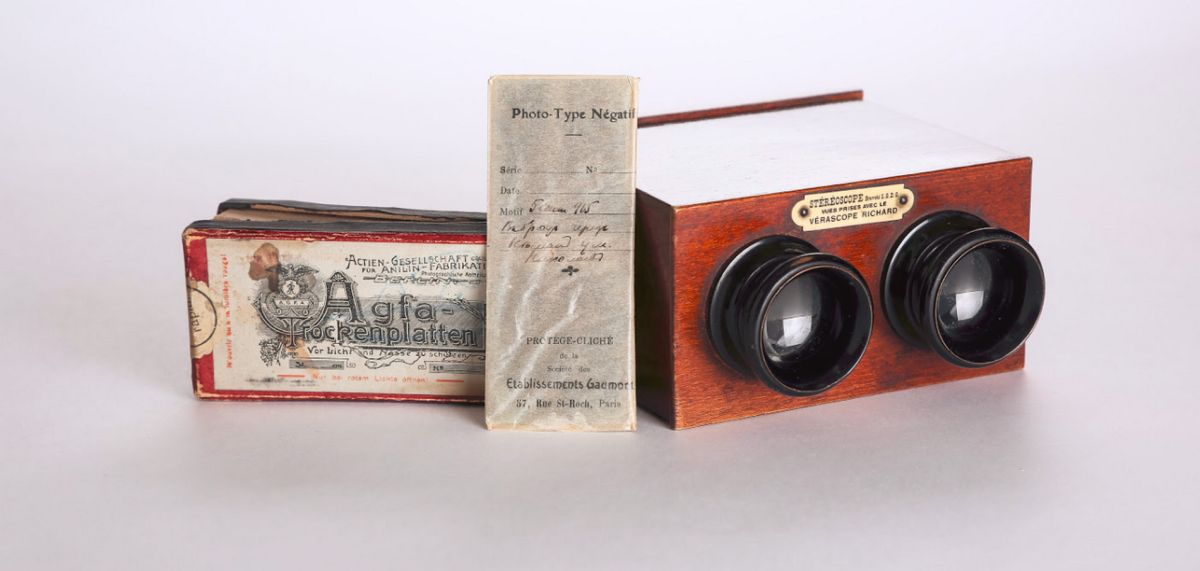 ACTIEN-GESELLSCHAFT
FÜR ANILIN-FABRIKATE
Photographische Abteil
BERLIN
AGFA
Agfa-
Trockenplatten
Vor Licht und Nässe zu schützen
Nur bei rotem Lichte öffnen!
N'ouvrir qu'à la lumière rouge!
Photo-Type Négatif
Série No
Date
Motif
PROTÈGE-CLICHÉ
de la
Société des
Etablissements Gaumont
57, Rue St-Roch, Paris
STÉRÉOSCOPE Breveté S.G.D.G.
VUES PRISES AVEC LE
VÉRASCOPE RICHARD